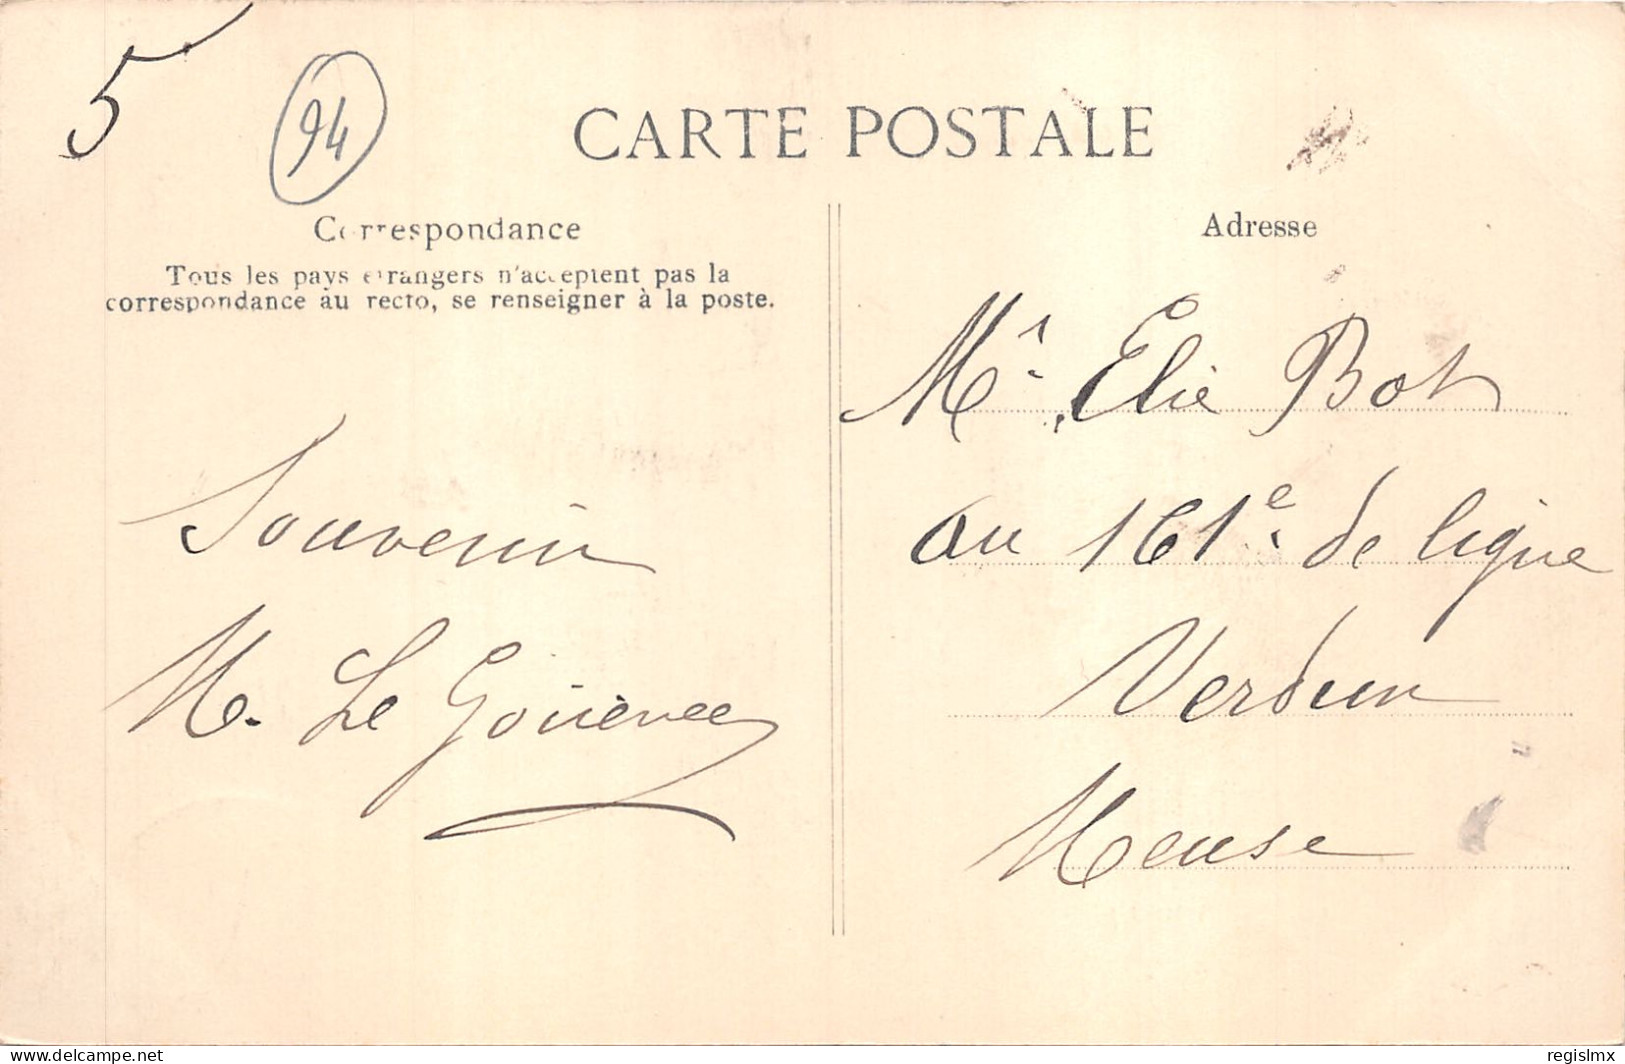 5
94
CARTE POSTALE
Correspondance
Tous les pays étrangers n'acceptent pas la
correspondance au recto, se renseigner à la poste.
Souvenir
M. Le
Adresse
Mr. Elie Bot
au 161e de ligne
Verdun
Meuse
delcampe.net
regislmx